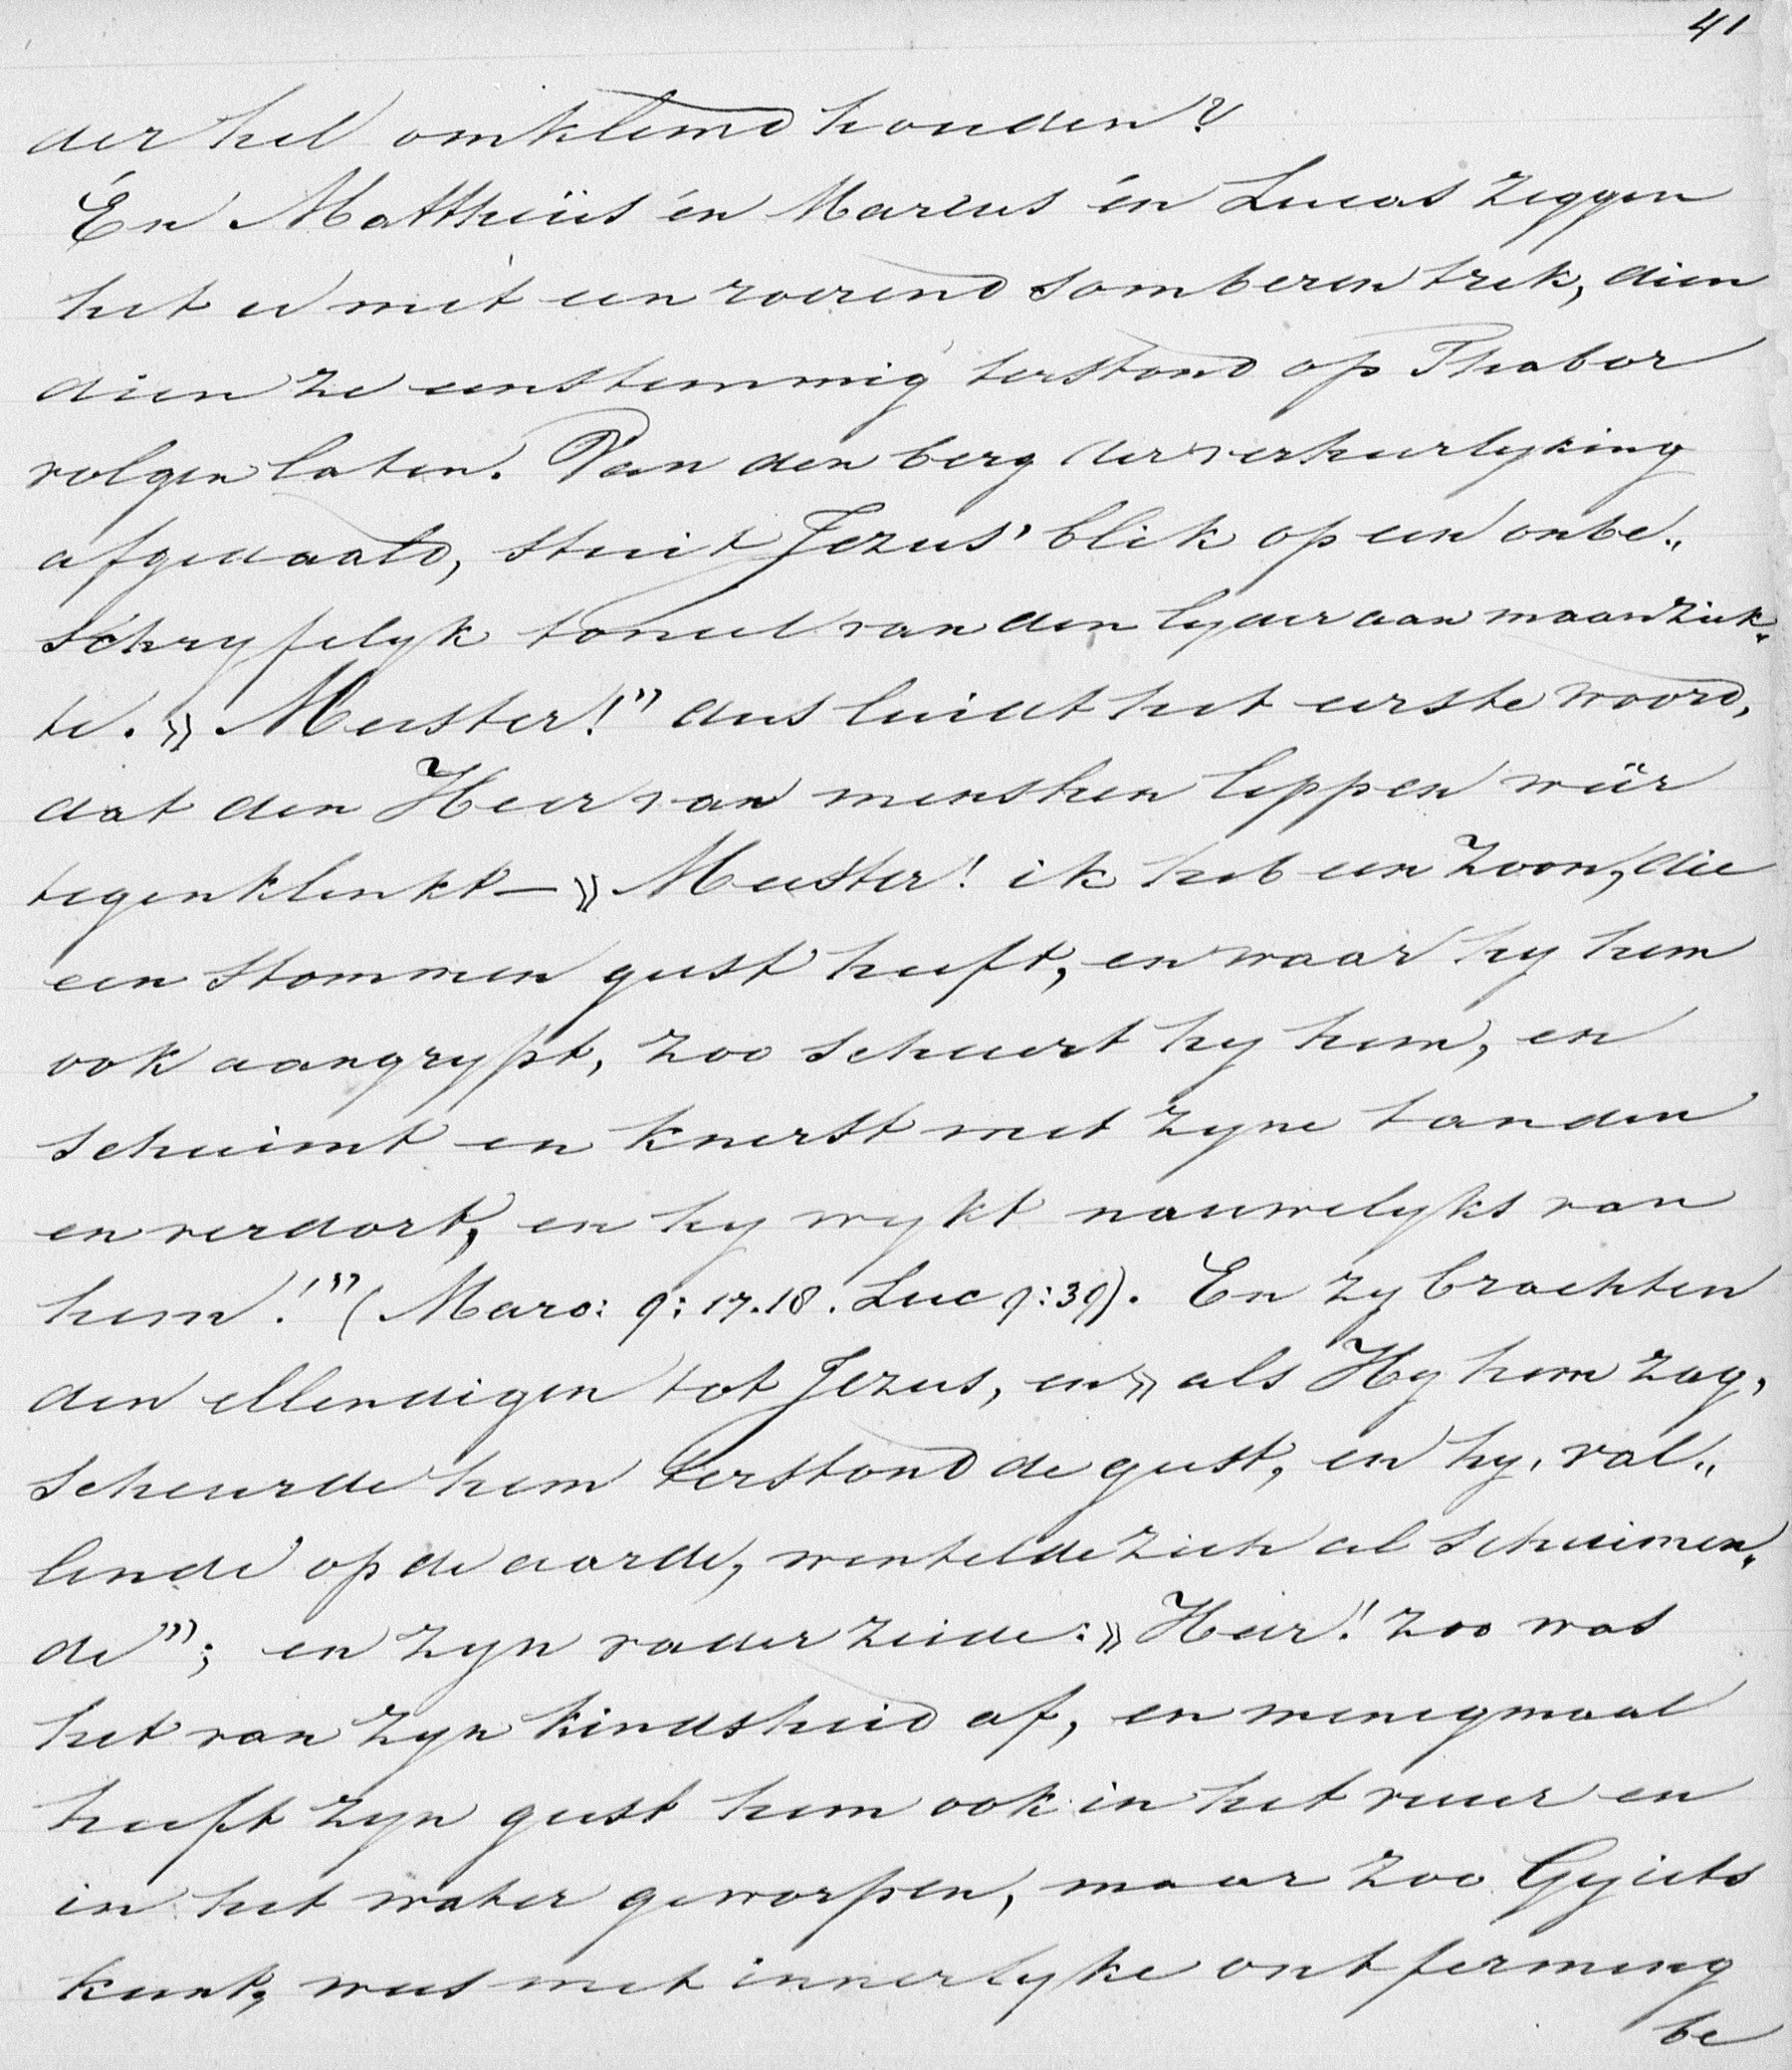 41
der hel omklemd houden?
Én Mattheüs én Marcus én Lucas zeggen
het u met een roerend somberen trek, dien
dien ze eenstemmig terstond op Thabor
volgen laten. Van den berg der verheerlyking
afgedaald, stuit Jezus' blik op een onbe„
schryfelyk toneel van den lyder aan maanziek„
te. » Meester!” dus luidt het eerste woord,
dat den Heer van menschen lippen weêr
tegenklinkt — » Meester! ik heb een zoon, die
een stommen geest heeft, en waar hy hem
ook aangrypt, zoo scheurt hy hem, en
schuimt en knerst met zyne tanden
en verdort, en hy wykt nauwelyks van
hem!” (Marc: 9: 17.18. Luc 9:39). En zy brachten
den ellendigen tot Jezus, en » als Hy hem zag,
scheurde hem terstond de geest, en hy, val„
lende op de aarde, wentelde zich al schuimen„
de”; en zyn vader zeide: » Heer! zoo was
het van zyn kindsheid af, en menigmaal
heeft zyn geest hem ook in het vuur en
in het water geworpen, maar zoo Gy iets
kunt, wees met innerlyke ontferming
be